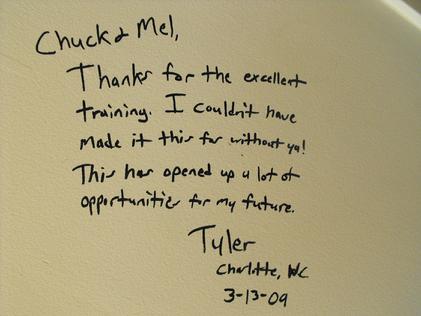 Chuck & Mel,
Thanks for the excellent
training. I couldn't have
made it this far without ya!
This has opened up a lot of
opportunities for my future.
Tyler
Charlotte, NC
3-13-09